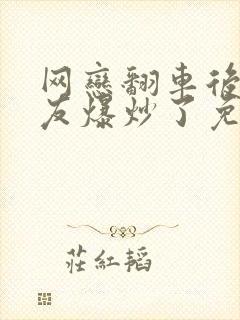 网戀翻車後
友爆炒了免
莊紅韜